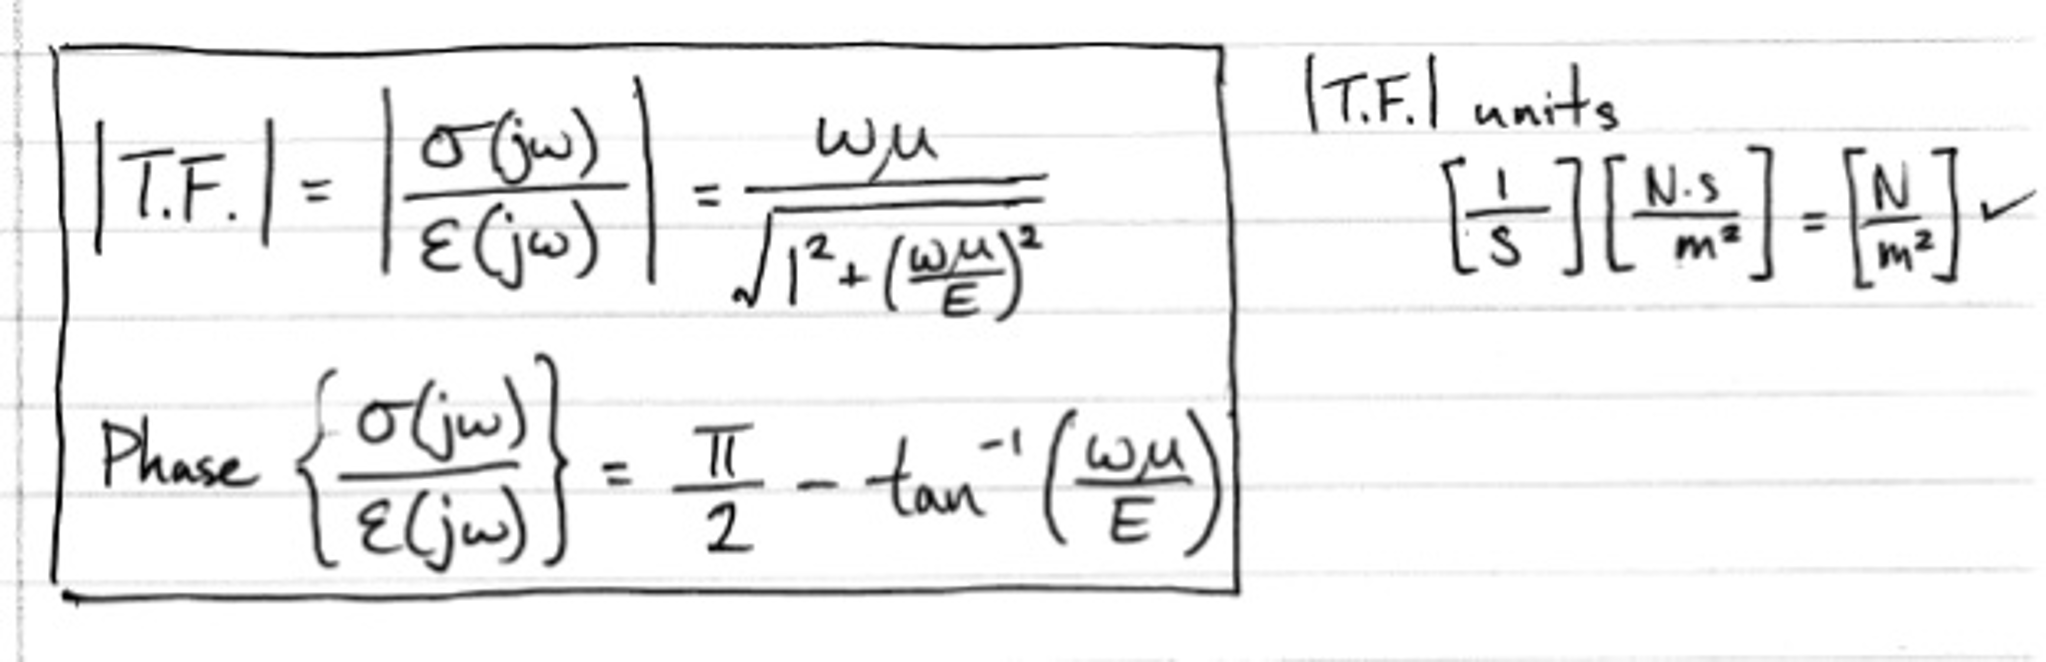 |T.F.| = |σ(jω)/ε(jω)| = ωμ/√(1² + (ωμ/E)²)
Phase {σ(jω)/ε(jω)} = π/2 - tan⁻¹(ωμ/E)
|T.F.| units
[1/s][N·s/m²] = [N/m²] ✓